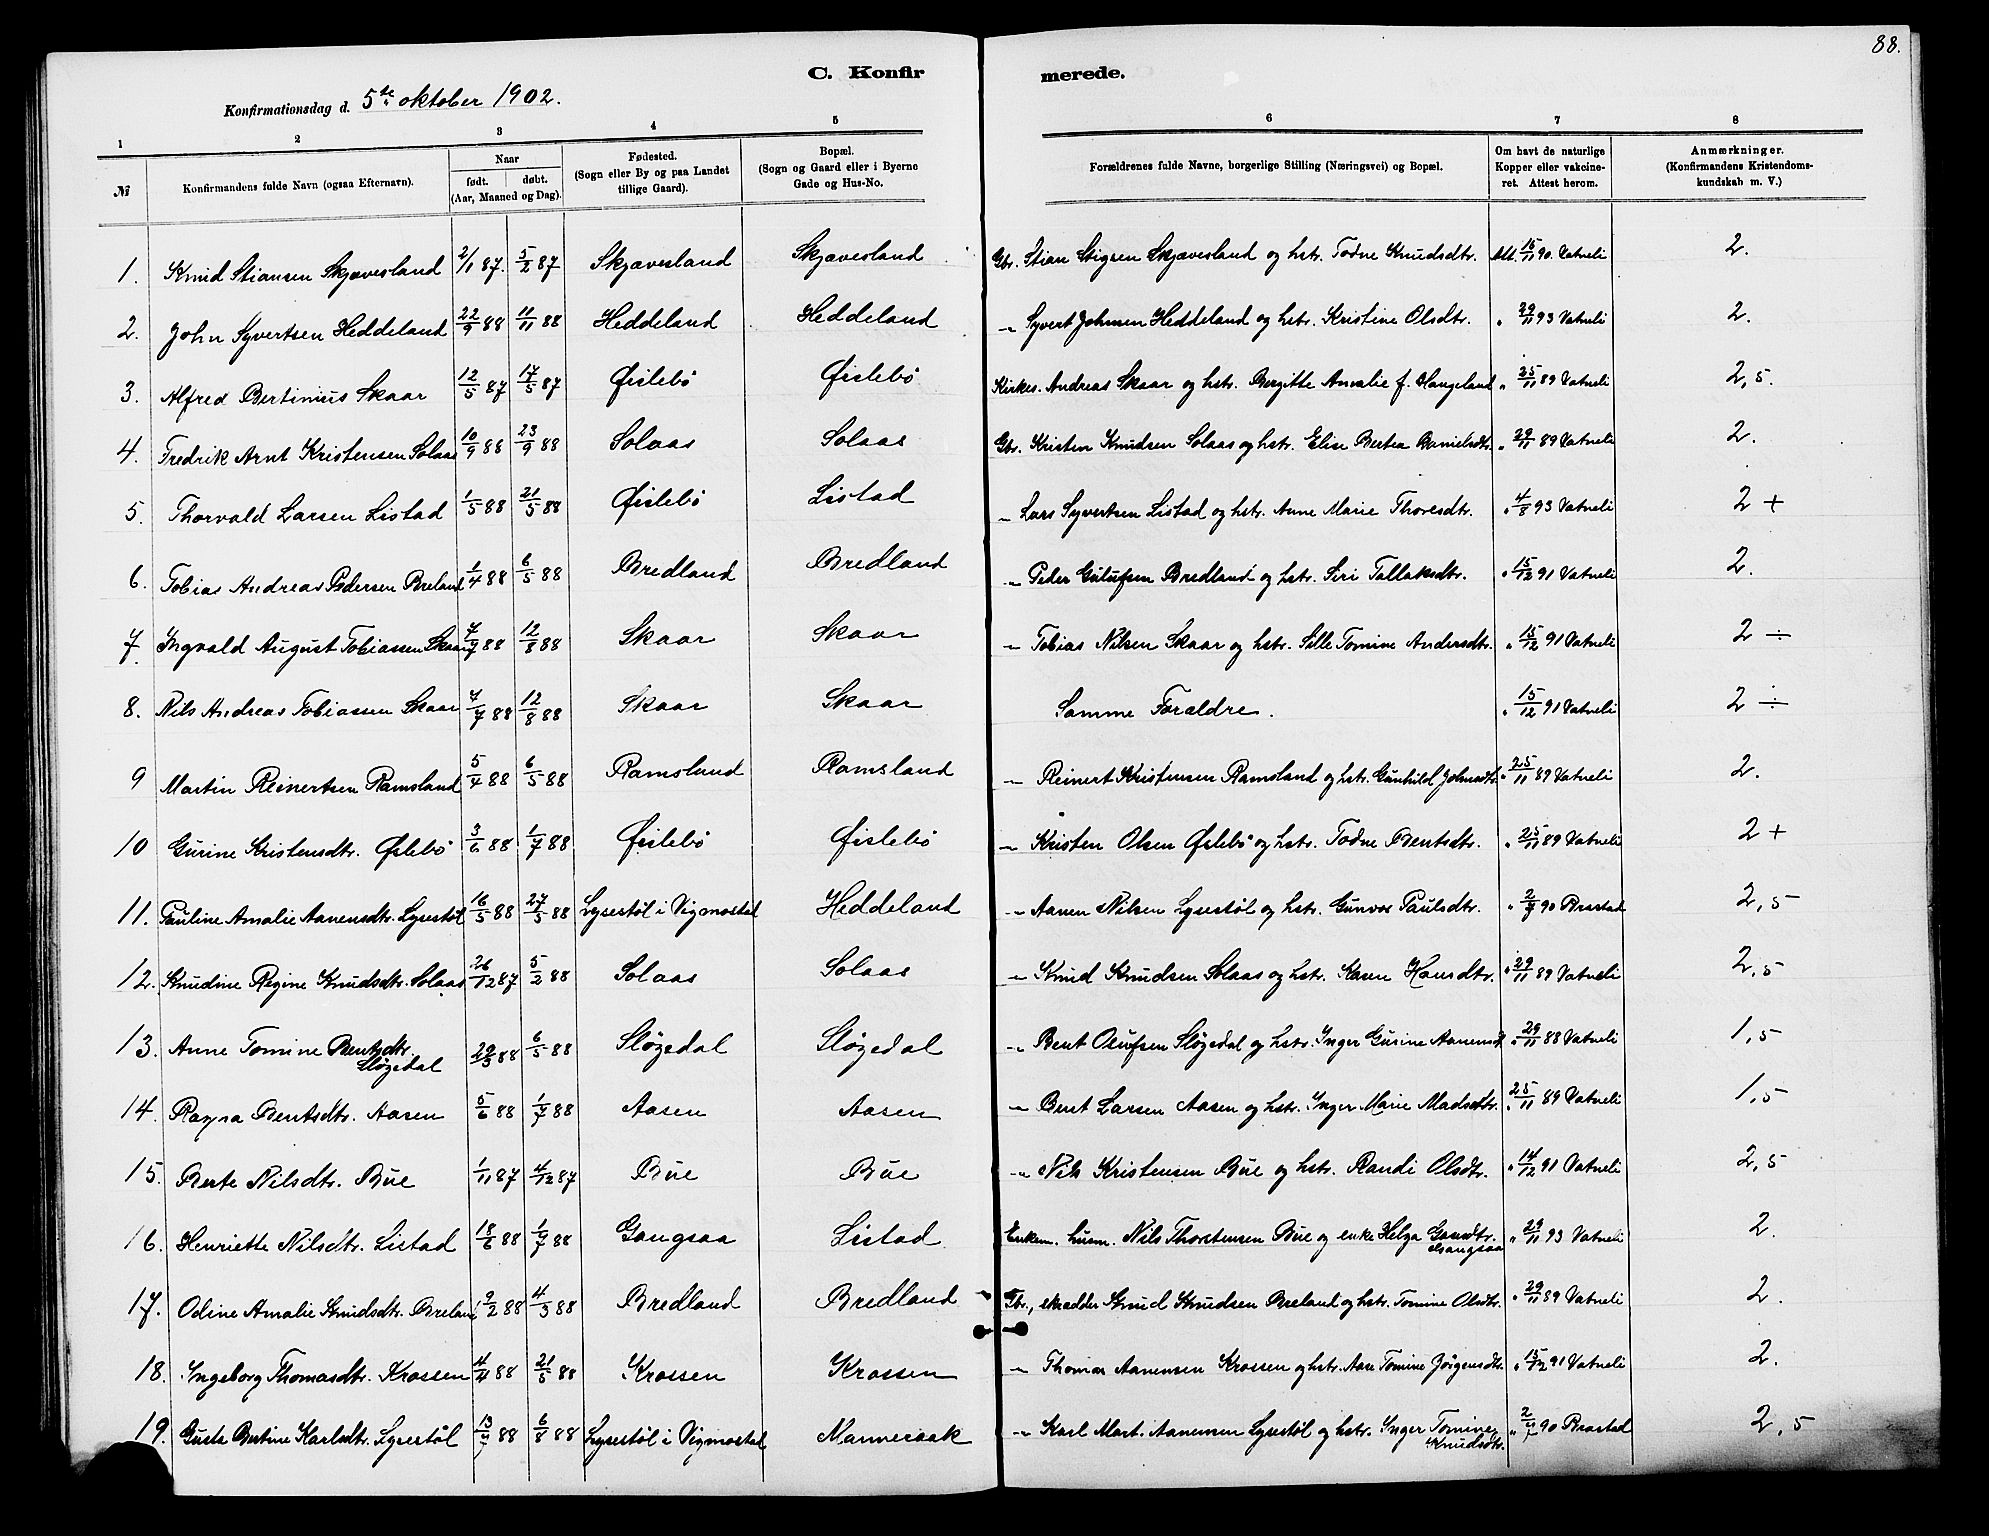 88.
C. Konfir merede.
Konfirmationsdag d. 5te oktober 1902.
1 2 3 4 5 6 7 8
№ Konfirmandens fulde Navn (ogsaa Efternavn). Naar født. døbt. (Aar, Maaned og Dag). Fødested. (Sogn eller By og paa Landet tillige Gaard). Bopæl. (Sogn og Gaard eller i Byerne Gade og Hus-No. Forældrenes fulde Navne, borgerlige Stilling (Næringsvei) og Bopæl. Om havt de naturlige Kopper eller vakcineret. Attest herom. Anmærkninger. (Konfirmandens Kristendomskundskab m. V.)
1. Knud Stiansen Skjævesland 2/1 87. 5/2 87 Skjævesland Skjævesland Gbr. Stian Stigsen Skjævesland og hstr. Todne Knudsdtr. Att. 15/11 90. Vatneli 2.
2. John Syvertsen Heddeland 22/9 88 11/11 88 Heddeland Heddeland -"- Syvert Johnsen Heddeland og hstr. Kristine Olsdtr. " 29/11 93 Vatneli 2.
3. Alfred Bertinius Skaar 12/5 87 17/5 87 Øislebö Øislebö Kirkes. Andreas Skaar og hstr. Bergitte Amalie f. Haugeland " 25/11 89 Vatneli 2,5.
4. Fredrik Arnt Kristensen Solaas 10/9 88 23/9 88 Solaas Solaas Gbr. Kristen Knudsen Solaas og hstr. Elise Bertea Danielsdtr. " 29/11 89 Vatneli 2.
5. Thorvald Larsen Listad 1/5 88 21/5 88 Øislebö Listad -"- Lars Syvertsen Listad og hstr. Anne Marie Thoresdtr. " 4/8 93 Vatneli 2 +
6. Tobias Andreas Pedersen Breland 1/4 88 6/5 88 Bredland Bredland -"- Peder Gulufsen Bredland og hstr. Siri Tallaksdtr. " 15/12 91 Vatneli 2.
7. Ingvald August Tobiassen Skaar 7/7 88 12/8 88 Skaar Skaar -"- Tobias Nilsen Skaar og hstr. Sille Tomine Andersdtr. " 15/12 91 Vatneli 2 ÷
8. Nils Andreas Tobiassen Skaar 7/7 88 12/8 88 Skaar Skaar Samme Forældre. " 15/12 91 Vatneli 2 ÷
9 Martin Reinertsen Ramsland 5/4 88 6/5 88 Ramsland Ramsland -"- Reinert Kristensen Ramsland og hstr. Gunhild Johnsdtr. " 25/11 89 Vatneli 2.
10 Gurine Kristensdtr. Øslebö 3/6 88 1/7 88 Øislebö Øislebö -"- Kristen Olsen Øslebö og hstr. Todne Bentsdtr. " 25/11 89 Vatneli 2 +
11. Pauline Amalie Aanensdtr. Lysestöl 16/5 88 27/5 88 Lysestöl i Vigmostad Heddeland -"- Aanen Nilsen Lysestöl og hstr. Gunvor Paulsdtr. " 2/7 90 Brastad 2,5
12. Knudine Regine Knudsdtr. Solaas 26/12 87 5/2 88 Solaas Solaas -"- Knud Knudsen Solaas og hstr. Karen Hansdtr. " 29/11 89 Vatneli 2,5
13. Anne Tomine Bentsdtr. Slögedal 29/3 88 6/5 88 Slögedal Slögedal -"- Bent Olufsen Slögedal og hstr. Inger Gurine Aanensd " 29/11 88 Vatneli 1,5
14. Ragna Bentsdtr. Aasen 5/6 88 1/7 88 Aasen Aasen -"- Bent Larsen Aasen og hstr. Inger Marie Madsdtr. " 25/11 89 Vatneli 1,5
15. Berte Nilsdtr. Bue 1/11 87 4/12 87 Bue Bue -"- Nils Kristensen Bue og hstr. Randi Olsdtr. " 14/12 91 Vatneli 2,5
16. Henriette Nilsdtr. Listad 18/6 88 1/7 88 Gangsaa Listad Enkem. husm. Nils Thorstensen Bue og enke Helga Gamdtr. Gangsaa " 29/11 93 Vatneli 2.
17. Odine Amalie Knudsdtr. Breland 9/2 88 4/3 88 Bredland Bredland Gbr., skrædder Knud Knudsen Breland og hstr. Tomine Olsdtr. " 29/11 89 Vatneli 2.
18. Ingeborg Thomasdtr. Krossen 4/4 88 21/5 88 Krossen Krossen -"- Thomas Aanensen Krossen og hstr. Aase Tomine Jörgensdtr. " 15/12 91 Vatneli 2.
19. Gusta Bertine Karlsdtr. Lysestöl 13/7 88 6/8 88 Lysestöl i Vigmostad Mannesaak -"- Karl Mart. Aanensen Lysestöl og hstr. Inger Tomine Knudsdtr. " 2/7 90 Brastad 2,5